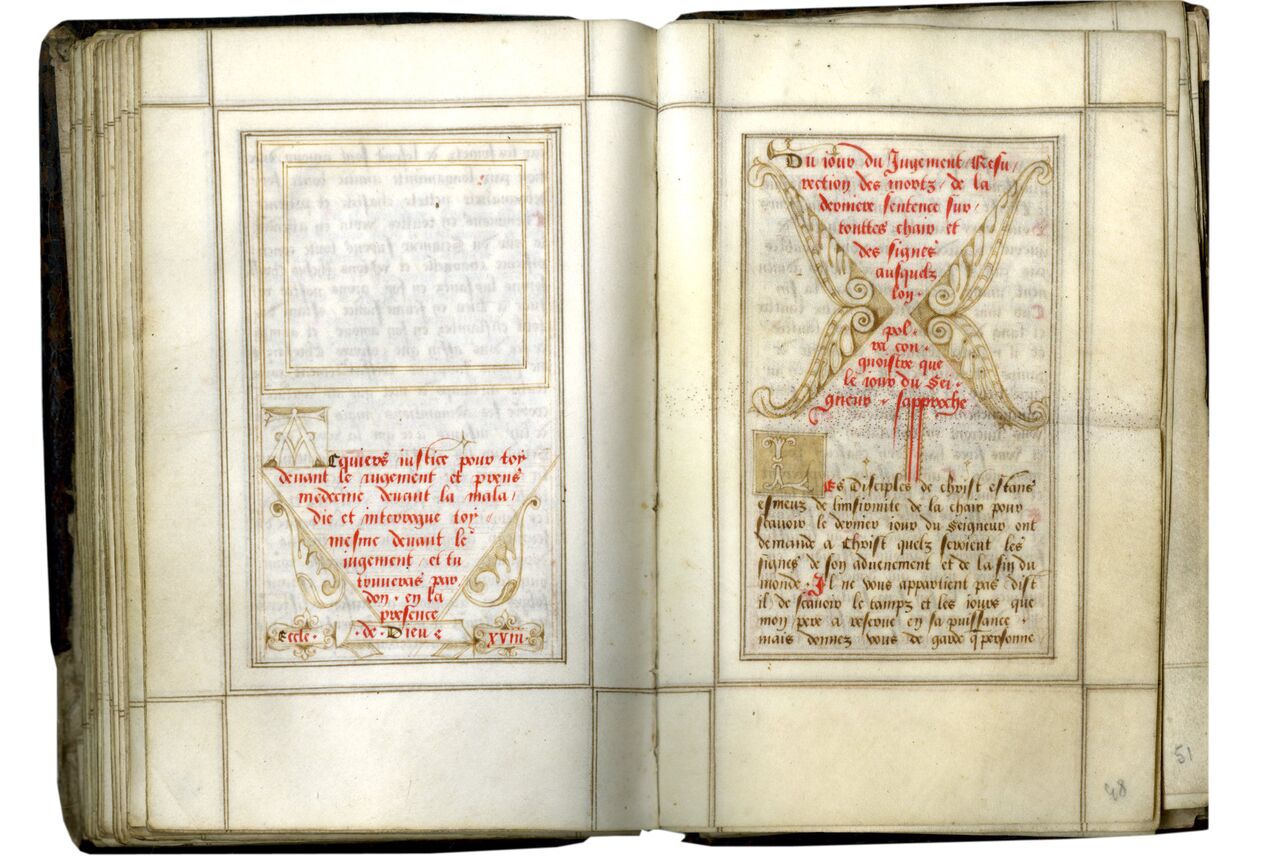 Acquiers iustice pour toy
deuant le iugement et prens
medecine deuant la mala/
die et interrogue toy
mesme deuant le
iugement / et tu
trouueras par
don · en la
presence
· de · Dieu
Eccle · XVIII ·
Du iour du Jugement / Resu/
rection des mortz / de la
derniere sentence sur
touttes chair et
des signes
ausquelz
lon ·
pol ·
ra con ·
gnoistre que
le iour du Sei ·
gneur · sapproche
Les Disciples de christ estans
esmeuz de linfirmite de la chair pour
scauoir le dernier iour du Seigneur ont
demande a Christ quelz seroient les
signes de son aduenement et de la fin du
monde · Il ne vous appartient pas dist
il de scauoir le tampz et les iours que
mon pere a reserue en sa puissance ·
mais donnez vous de garde q̄ personne
48
51